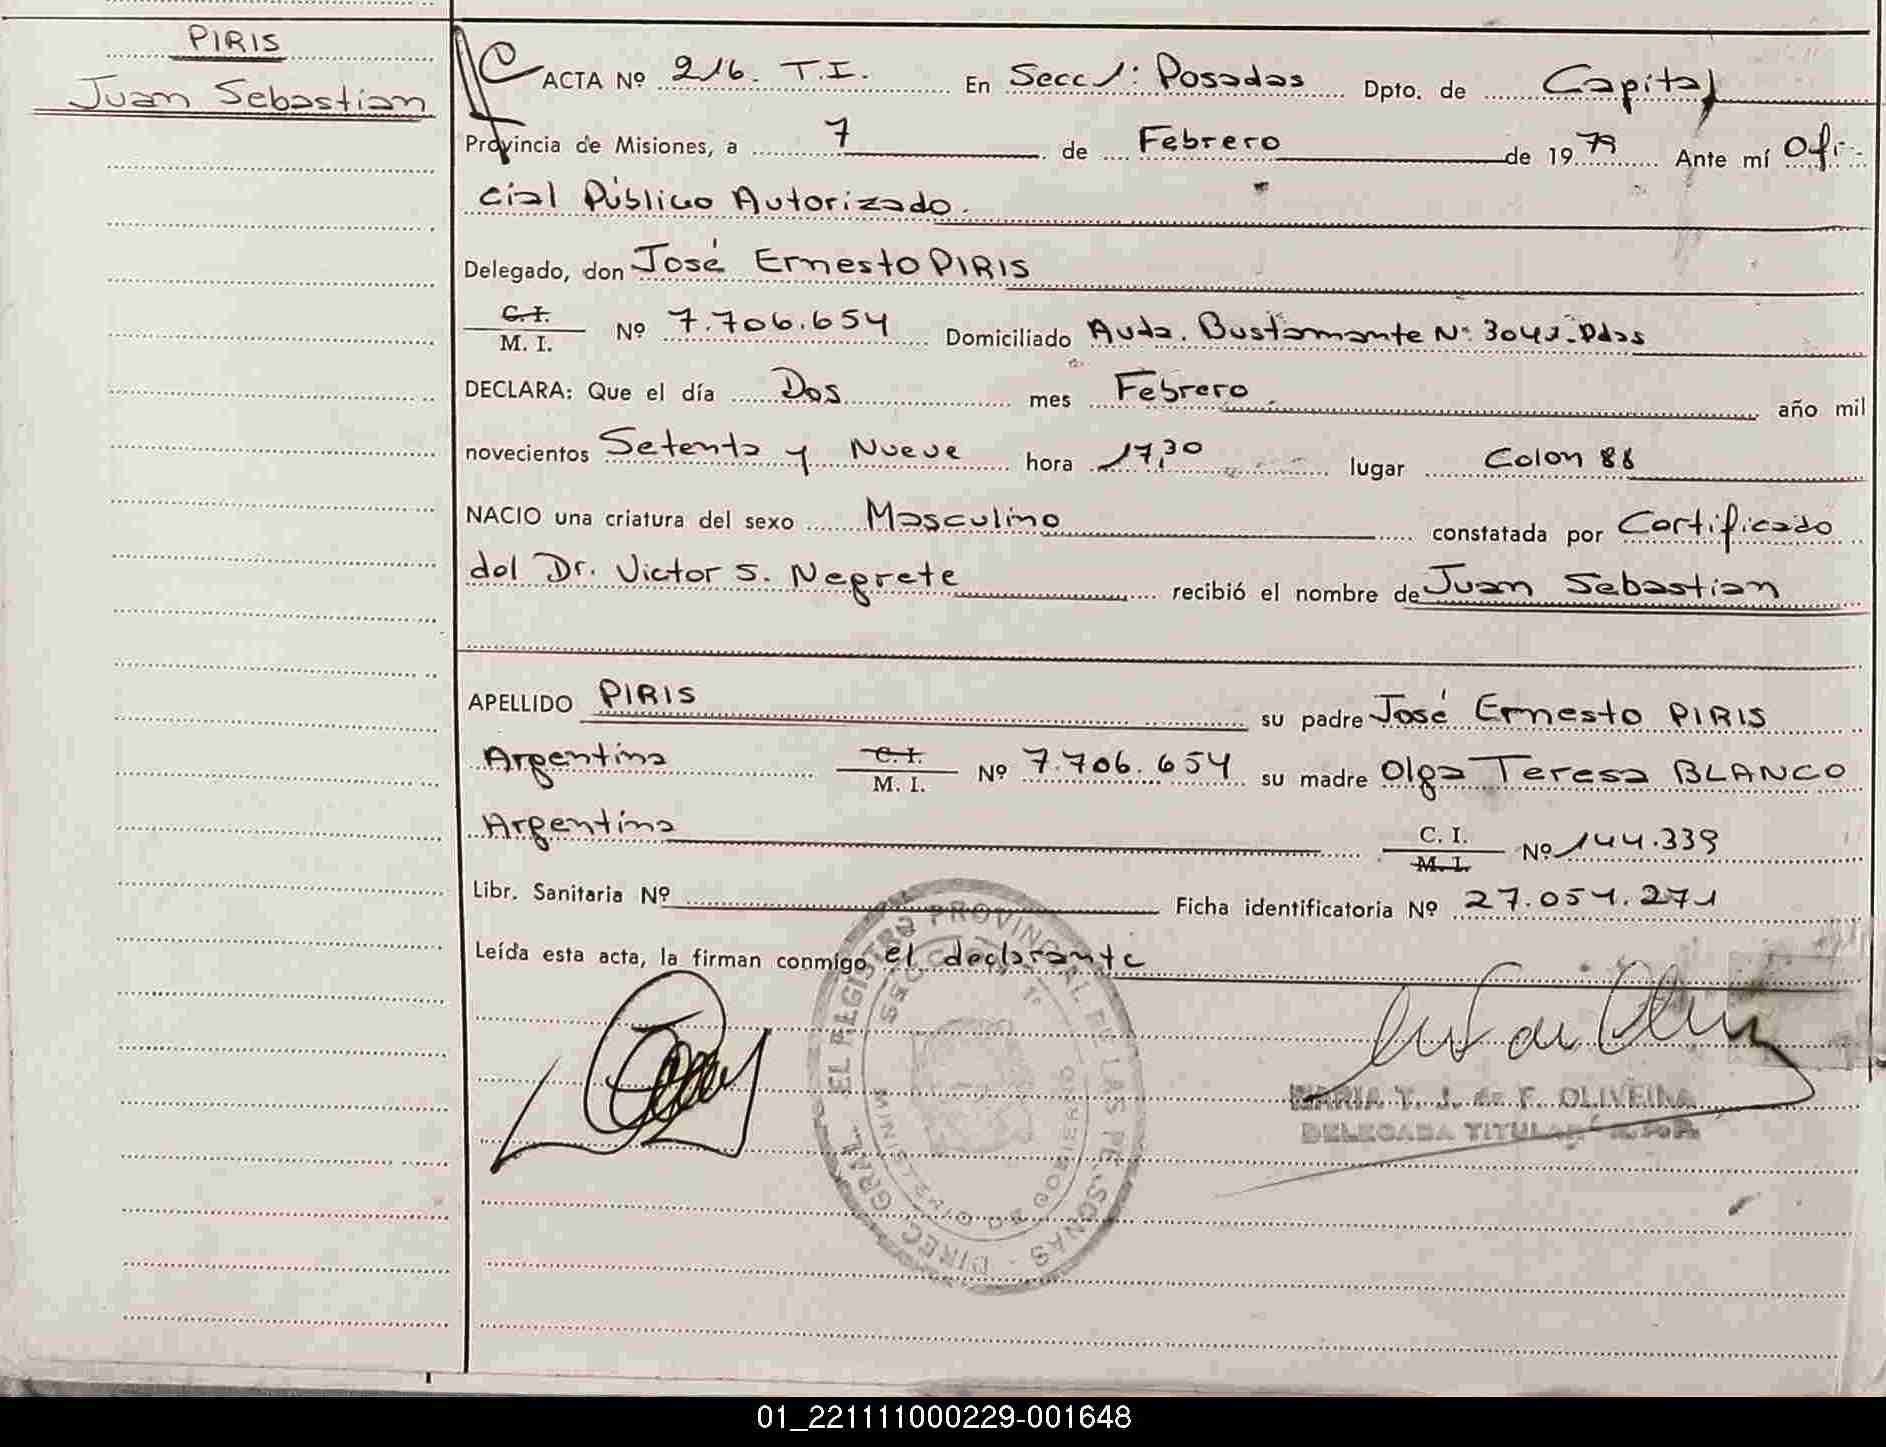 PIRIS
Juan Sebastian
ACTA Nº 216. T.I. En Secc 1: Posadas Dpto. de Capital
Provincia de Misiones, a 7 de Febrero de 1979 Ante mí Ofi-
cial Público Autorizado.
Delegado, don José Ernesto PIRIS
C.I. / M. I. Nº 7.706.654 Domiciliado Avda. Bustamante Nº 3041-Pdas
DECLARA: Que el día Dos mes Febrero. año mil
novecientos Setenta y Nueve hora 17,30 lugar Colon 88
NACIO una criatura del sexo Masculino constatada por Certificado
del Dr. Victor S. Negrete recibió el nombre de Juan Sebastian
APELLIDO PIRIS su padre José Ernesto PIRIS
Argentina C.I. / M. I. Nº 7.706.654 su madre Olga Teresa BLANCO
Argentina C. I. / M. I. Nº 144.339
Libr. Sanitaria Nº Ficha identificatoria Nº 27.051.271
Leída esta acta, la firman conmigo el declarante
DIREC. GRAL. EL REGISTRO PROVINCIAL DE LAS PERSONAS
SECC 1º
MARIA T. J. de F. OLIVEIRA
DELEGADA TITULAR
01_221111000229-001648